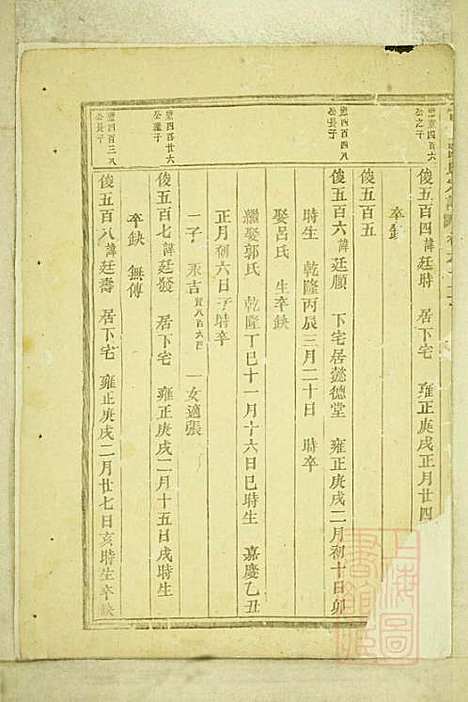 俊五百四 諱廷時 居下宅 雍正庚戌正月廿四
卒缺
俊五百五
惠四百四八
公長子
俊五百六 諱廷願 下宅居懿德堂 雍正庚戌二月初十日卯
時生 乾隆丙辰三月二十日 時卒
娶呂氏 生卒缺
繼娶郭氏 乾隆丁巳十一月十六日巳時生 嘉慶乙丑
正月初六日子時卒
一子 永吉 一女適張
俊五百七 諱廷發 居下宅 雍正庚戌二月十五日戌時生
卒缺 無傳
俊五百八 諱廷壽 居下宅 雍正庚戌二月廿七日亥時生卒缺
上海圖書館藏